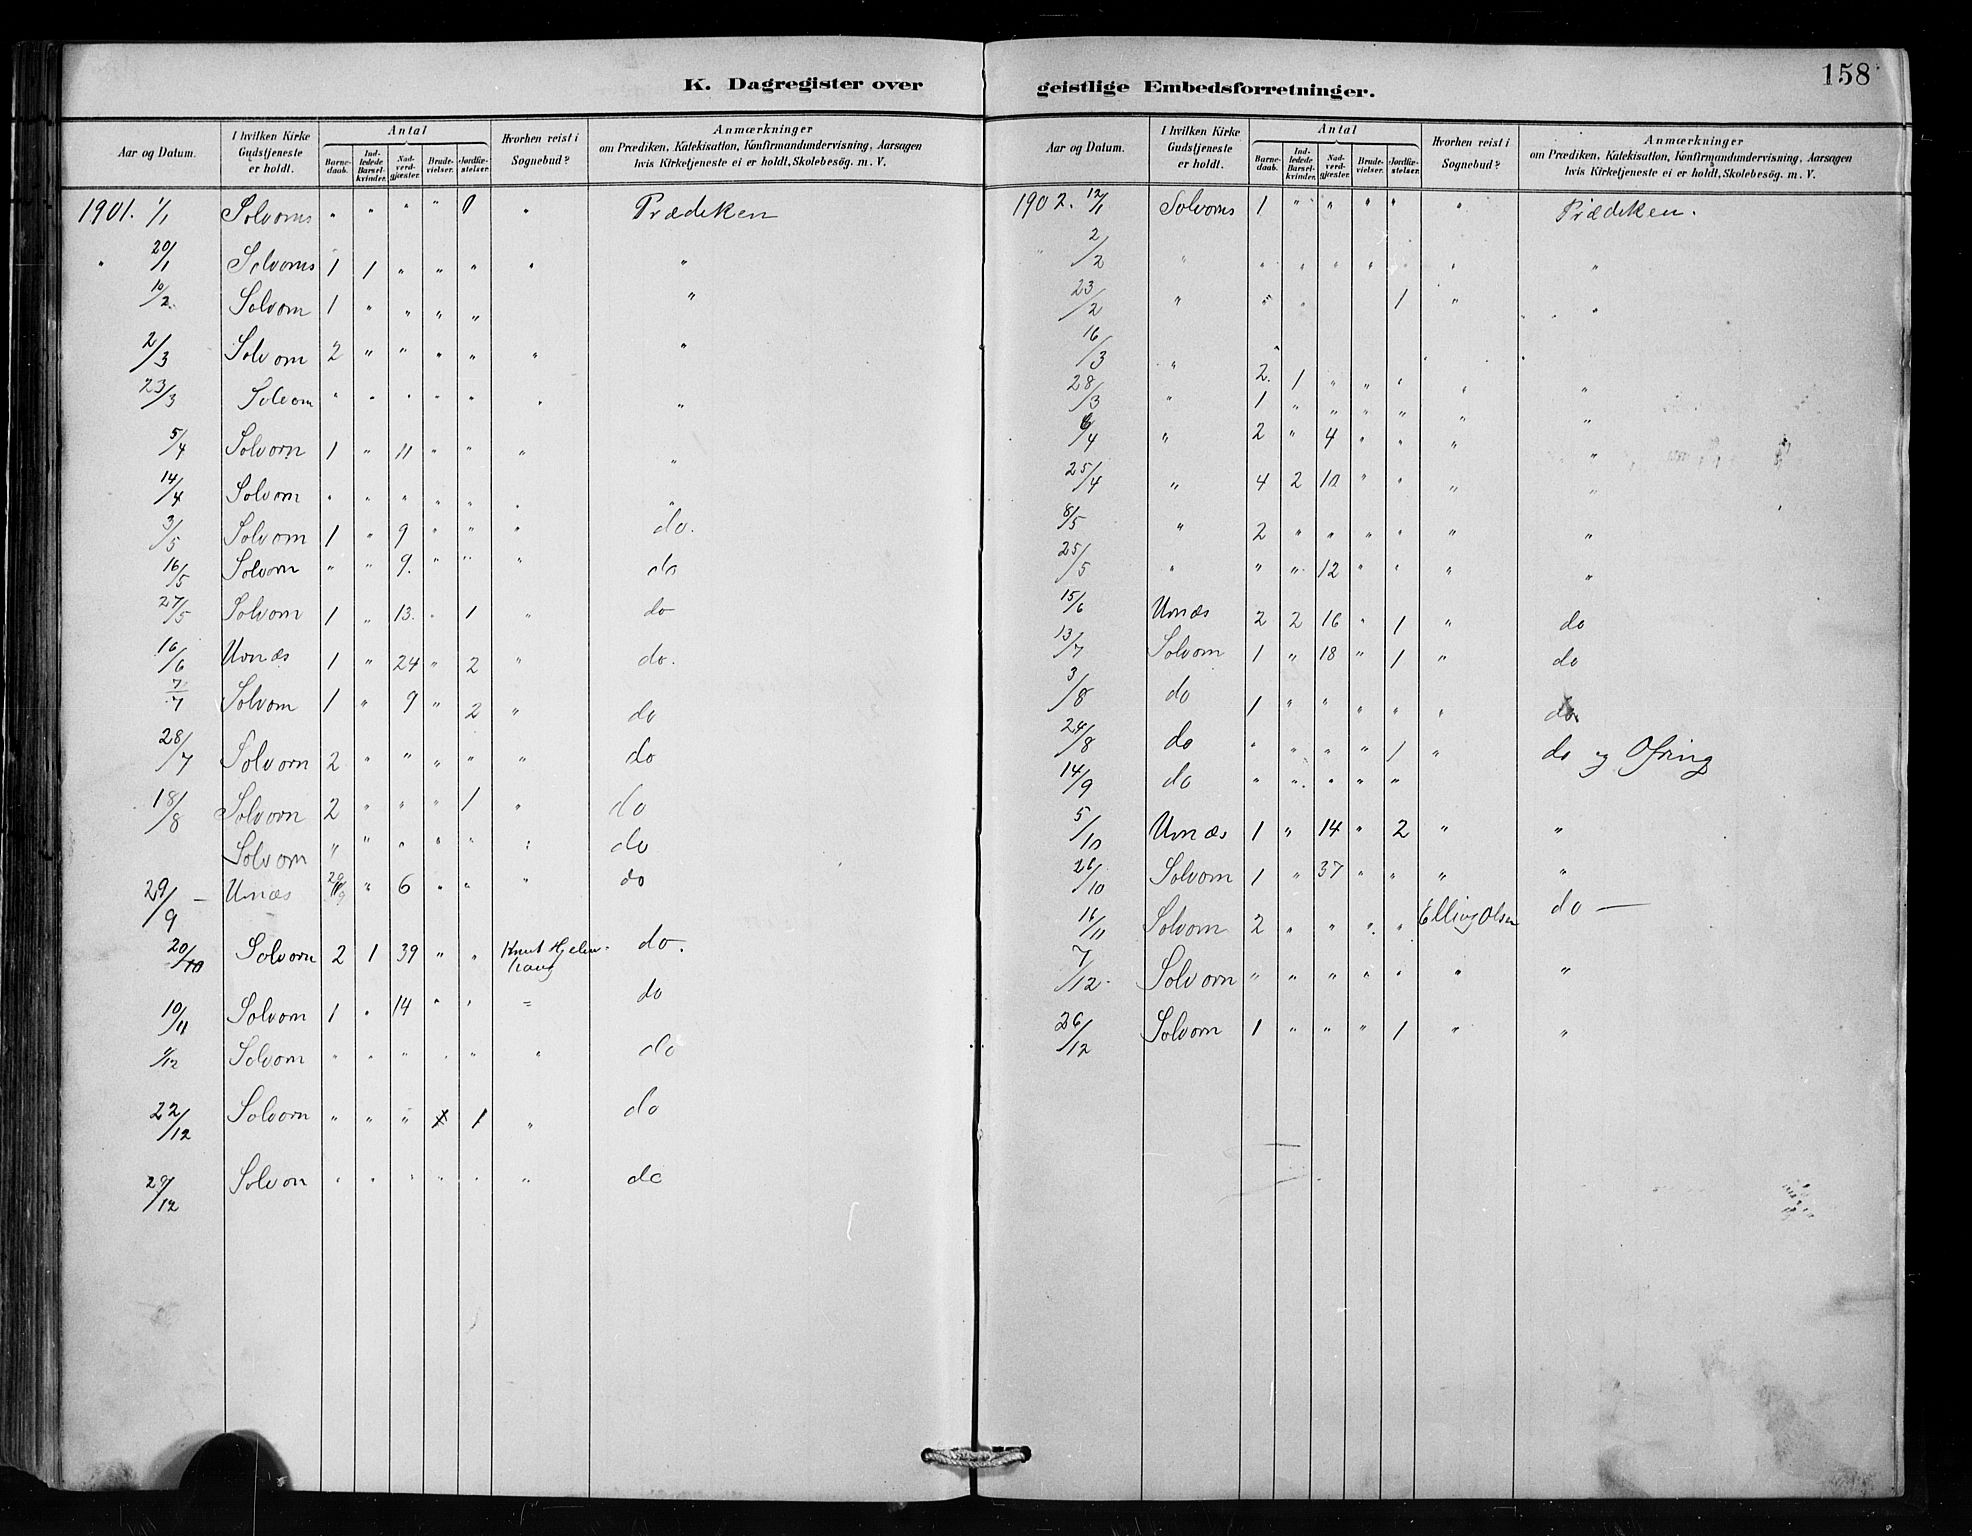 158
K. Dagregister over
Aar og Datum.
I hvilken Kirke Gudstjeneste er holdt.
Antal
Barnedaab.
Indledede Barselkvinder.
Nadverdgjæster.
Brudevielser.
Jordfæstelser.
Hvorhen reist i Sognebud?
Anmærkninger
om Prædiken, Katekisation, Konfirmandundervisning, Aarsagen
hvis Kirketjeneste ei er holdt, Skolebesög. m. V.
1901. 1/1 Solvorns " " " " 1 " Prædeken
" 20/1 Solvorns 1 1 " " " " "
10/2 Solvorn 1 " " " " "
2/3 Solvorn 2 " " " " " "
23/3 Solvorn " " " " " " "
5/4 Solvorn 1 " 11 " " " "
14/4 Solvorn " " " " " " "
3/5 Solvorn 1 " 9 " " " do.
16/5 Solvorn " " 9. " " " do
27/5 Solvorn 1 " 13. " 1 " do
16/6 Urnæs 1 " 24 " 2 " do.
7/7 Solvorn 1 " 9 " 2 " do
28/7 Solvorn 2 " " " " " do
18/8 Solvorn 2 " " " 1 " do
Solvorn " " " " " " do
29/9 – Urnæs " 6 " " " do
20/10 Solvorn 2 1 39 " " Knut Hjelm- do.
haug
10/11 Solvorn 1 " 14 " " " do
1/12 Solvorn " " " " " " do
22/12 Solvorn " " " 1 1 " do
29/12 Solvorn " " " " " " do
geistlige Embedsforretninger.
Aar og Datum.
I hvilken Kirke Gudstjeneste er holdt.
Antal
Barnedaab.
Indledede Barselkvinder.
Nadverdgjæster.
Brudevielser.
Jordfæstelser.
Hvorhen reist i Sognebud?
Anmærkninger
om Prædiken, Katekisation, Konfirmandundervisning, Aarsagen
hvis Kirketjeneste ei er holdt, Skolebesög. m. V.
1902. 12/1 Solvorns 1 " " " " " Prædeken.
" 2/2 " " " " " " " "
23/2 " " " 1 " "
16/3 " 2. 1 " " " " "
28/3 " 1 " " " " " "
6/4 " 2 " 4 " " " "
25/4 " 4 2 10 " " " "
8/5 " 2 " " " " " "
25/5 " " " 12 " " " "
15/6 Urnæs 2 2 16 " 1 " do
13/7 Solvorn 1 " 18 " 1 " do
3/8 do 1 " " " " " do
24/8 do " " " " 1 " do og Ofring
14/9 do " " " " "
5/10 Urnæs 1 " 14 " 2 " "
26/10 Solvorn 1 " 37 " " " "
16/11 Solvorn 2 " " " " Elling Olsen do –
7/12. Solvorn " " " " " " "
26/12 Solvorn 1 " " " 1 " "